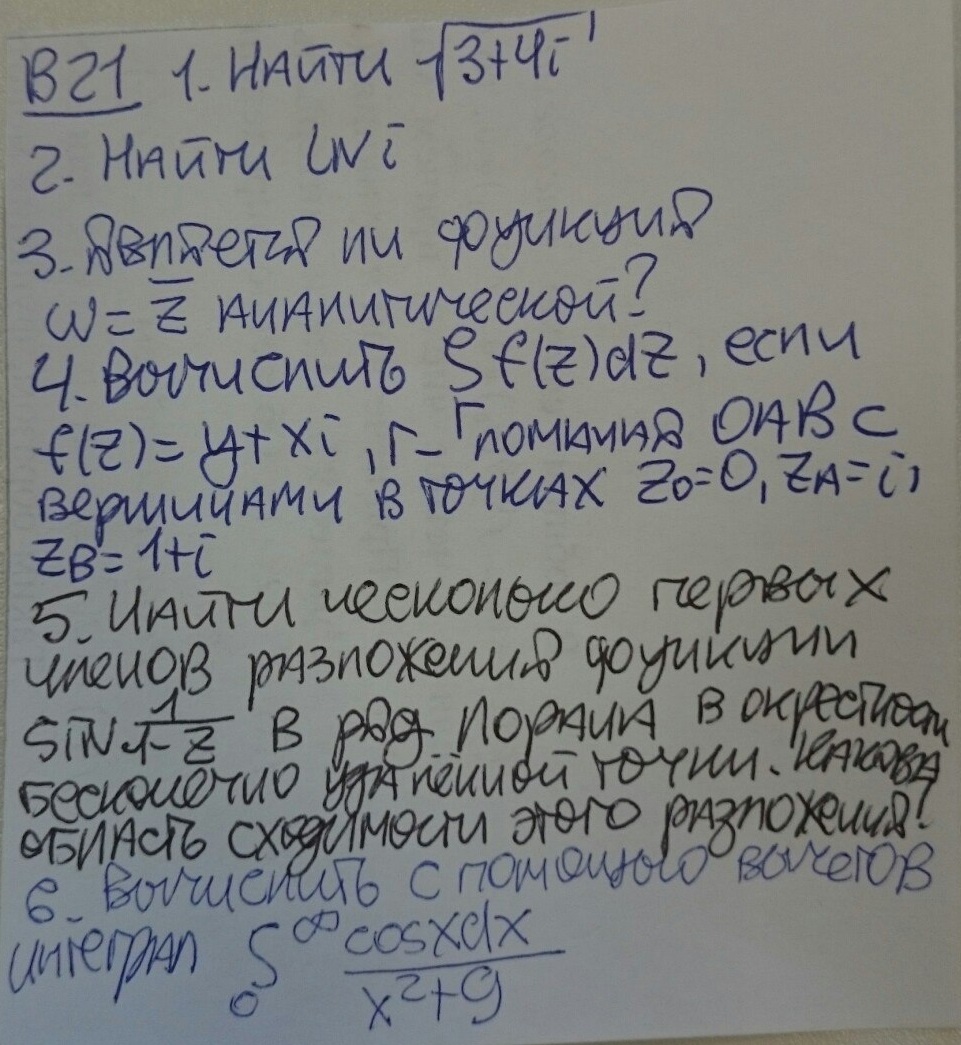 В21 1. Найти √3+4i
2. Найти LNi
3. Является ли функция
ω = z̅ аналитической?
4. Вычислить ∫ f(z)dz, если
f(z) = y + xi, Г - ломаная OAB с
вершинами в точках z₀=0, zA=i,
zB=1+i
5. Найти несколько первых
членов разложения функции
sin 1/1-z в ряд Лорана в окрестности
бесконечно удалённой точки. Какова
область сходимости этого разложения?
6. Вычислить с помощью вычетов
интеграл ∫₀^∞ cosxdx/x²+9